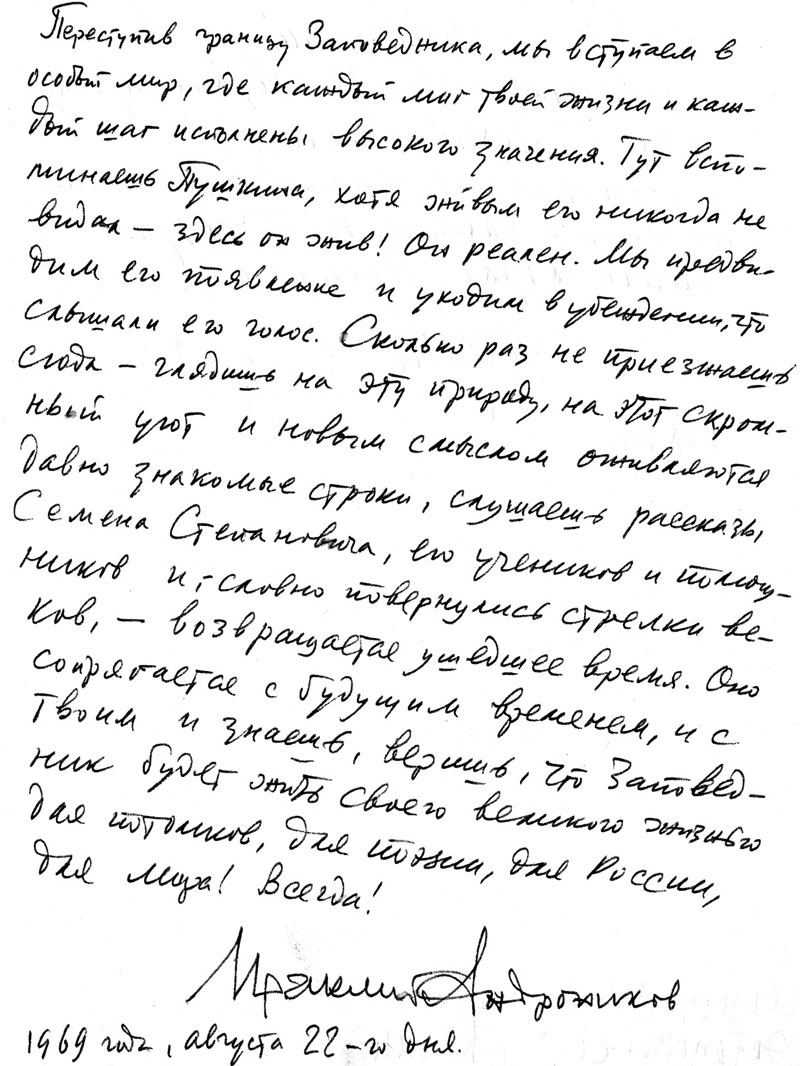 Переступив границу Заповедника, мы вступаем в
особый мир, где каждый миг твоей жизни и каж-
дый шаг исполнены высокого значения. Тут вспо-
минаешь Пушкина, хотя живым его никогда не
видал – здесь он жив! Он реален. Мы предви-
дим его появление и уходим в убеждении, что
слышали его голос. Сколько раз не приезжаешь
сюда – глядишь на эту природу, на этот скром-
ный уют и новым смыслом оживляются
давно знакомые строки, слушаешь рассказы
Семена Степановича, его учеников и помощ-
ников и, словно повернулись стрелки ве-
ков, – возвращается ушедшее время. Оно
сопрягается с будущим временем, и с
твоим и знаешь, веришь, что Заповед-
ник будет жить своего великого жизнью
для потомков, для поэзии, для России,
для мира! Всегда!
Ираклий Андроников
1969 года, августа 22-го дня.